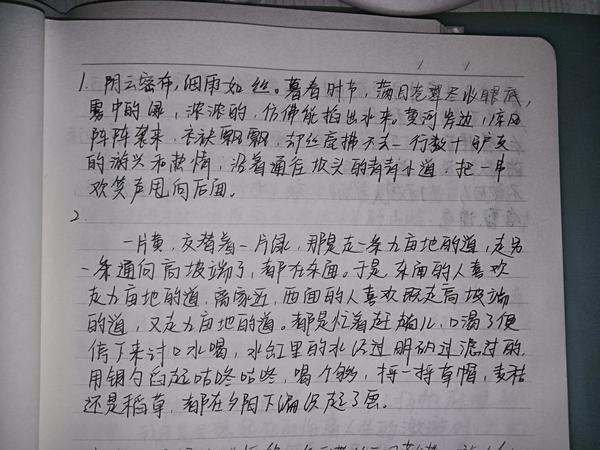 1. 阴云密布，细雨如丝。暮春时节，满目苍翠尽收眼底，
雾中的绿，浓浓的，仿佛能掐出水来。黄河岸边，凉风
阵阵袭来，衣袂飘飘，却丝毫拂不去一行数十驴友
的游兴和热情，沿着通往坡头的青青小道，把一串
欢笑声甩向后面。
2.
一片黄，交替着一片绿，那是走一条九亩地的道，走另
一条通向高坡端了，都在东面。于是，东面的人喜欢
走九亩地的道，离家近，西面的人喜欢既走高坡端
的道，又走九亩地的道。都是忙着赶趟儿，口渴了便
停下来讨口水喝，水缸里的水经过明矾过滤过的，
用铜勺舀起咕咚咕咚，喝个够，捋一捋草帽，麦秸
还是稻草，都在夕阳下